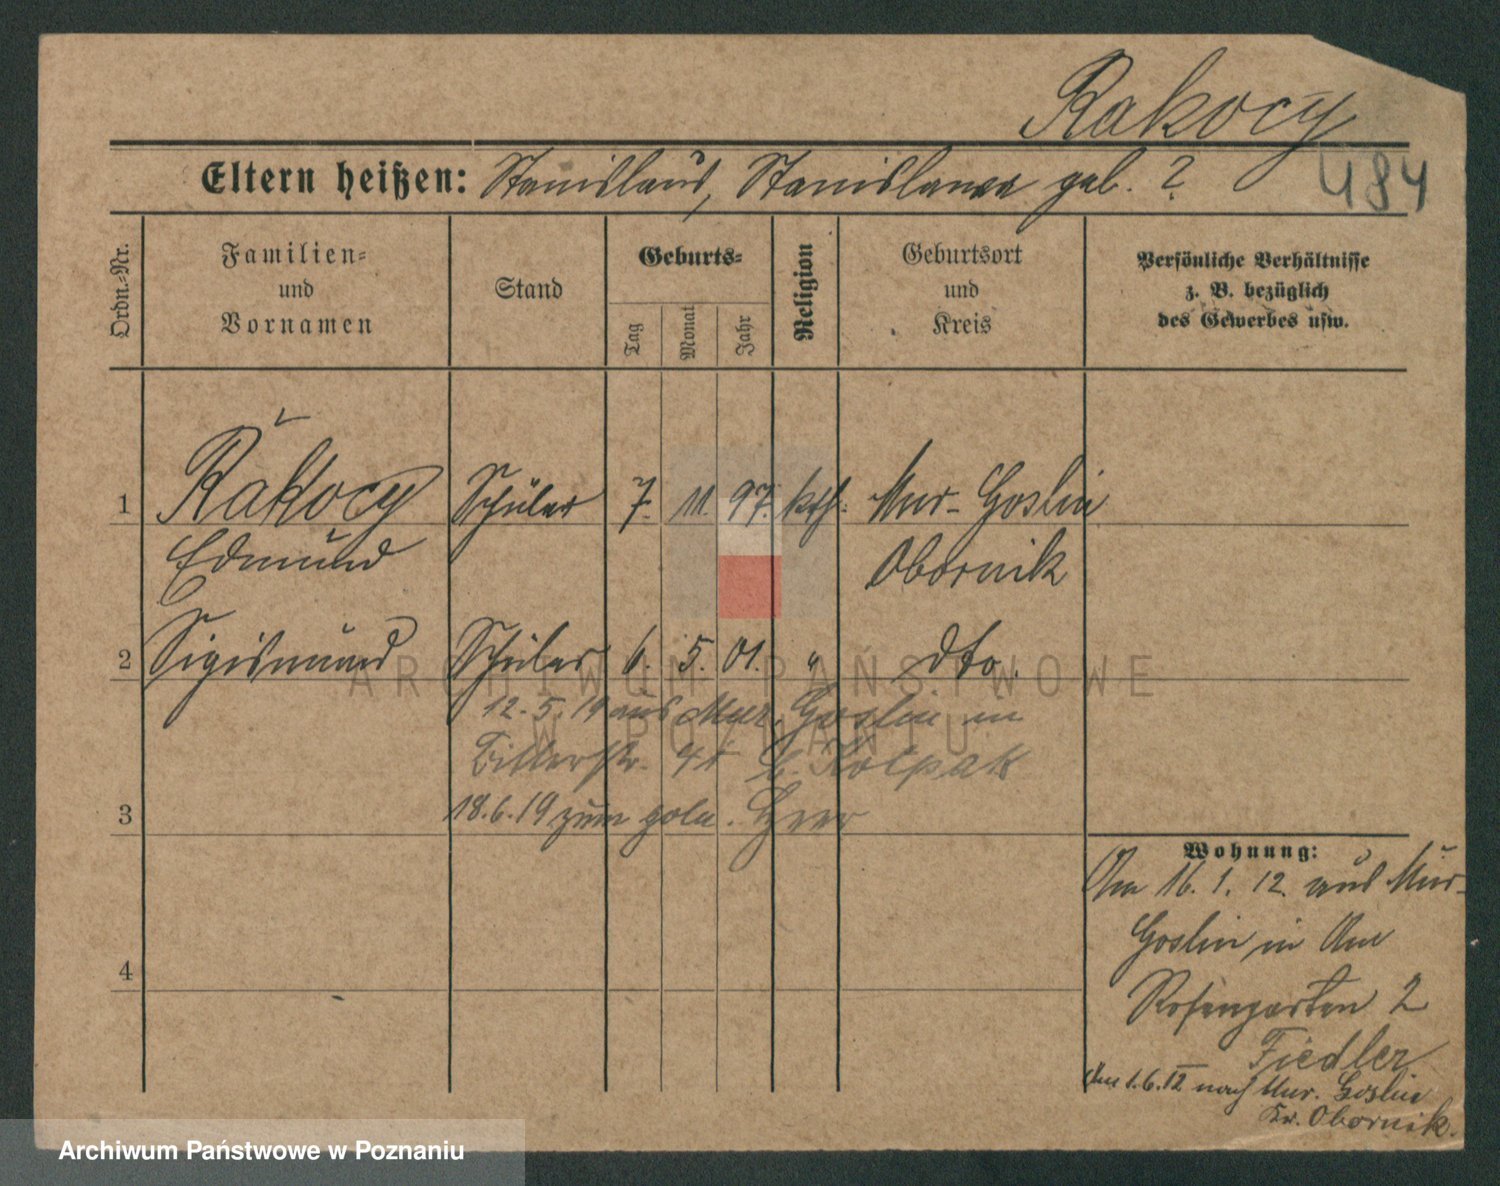 Rakocy
484
Eltern heißen: Stanislaus, Stanislawa geb. ?
Ordn.-Nr.
Familien-
und
Vornamen
Stand
Geburts-
Tag
Monat
Jahr
Religion
Geburtsort
und
Kreis
Persönliche Verhältnisse
z. B. bezüglich
des Gewerbes usw.
1 Rakocy Schüler 7. 11. 97. kth. Mur-Goslin
Edmund Obornik
2 Sigismund Schüler 6. 5. 01. " dto.
12.5.19 aus Mur. Goslin in
Bitterstr. 41 b. Kolpak
3 18.6.19 zum poln. Heer
4
Wohnung:
Am 16.1.12. aus Mur-
Goslin in Am
Rosengarten 2
Fiedler
Am 1.6.12 nach Mur. Goslin
Kr. Obornik.
ARCHIWUM PAŃSTWOWE
W POZNANIU
Archiwum Państwowe w Poznaniu